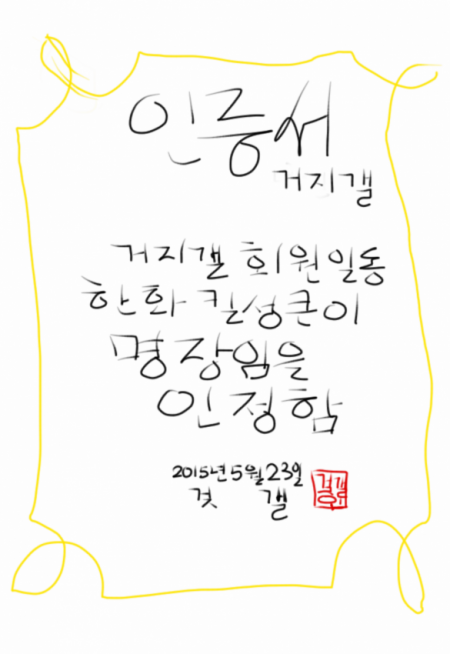 인증서
거지갤
거지갤 회원일동
한화 킬성큰이
명장임을
인정함
2015년 5월 23일
것 갤